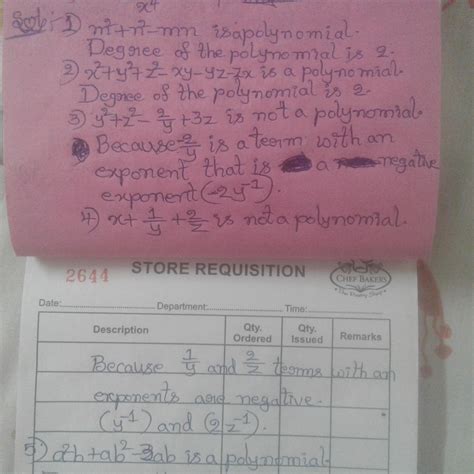 x⁴
Soln: 1) m²+n²-mn is a polynomial.
Degree of the polynomial is 2.
2) x²+y²+z²-xy-yz-zx is a polynomial.
Degree of the polynomial is 2.
3) y²+z²-2/y+3z is not a polynomial.
Because 2/y is a term with an
exponent that is a negative
exponent (-2y⁻¹).
4) x+1/y+2/z is not a polynomial.
2644 STORE REQUISITION CHEF BAKERS
Date: Department: Time:
Description Qty. Ordered Qty. Issued Remarks
Because 1/y and 2/z terms with an
exponents are negative.
(y⁻¹) and (2z⁻¹)
5) a²b+ab²-3ab is a polynomial.